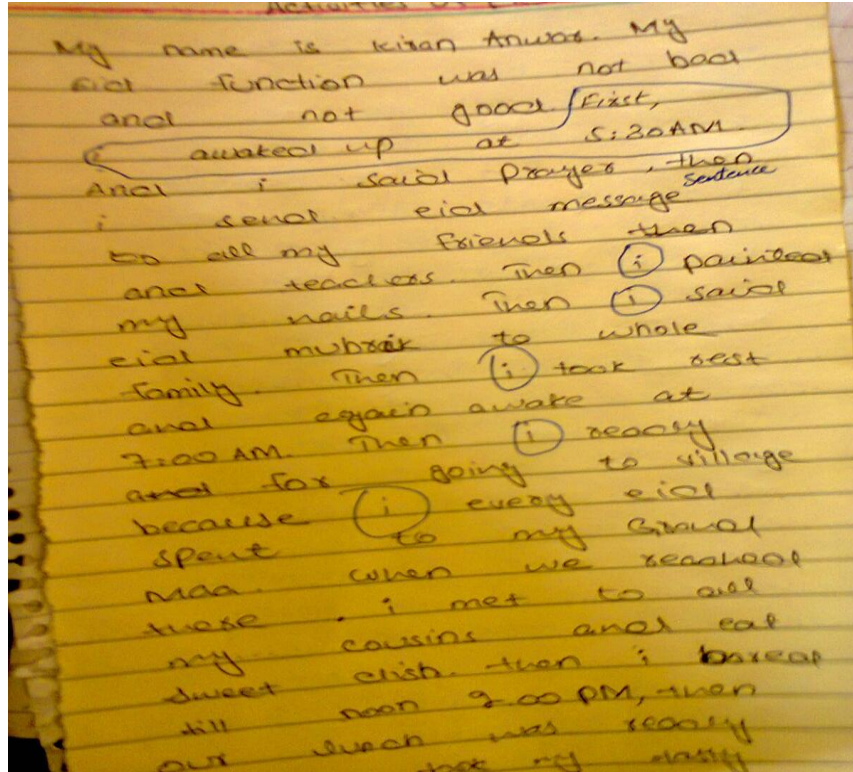 Activities of
My name is Kiran Anwar. My
eid function was not bad
and not good. First,
i awaked up at 5:30 AM.
And i said Prayer, then
i send eid message sentence
to all my Friends then
and teachers. Then i painted
my nails. Then i said
eid mubrak to whole
family. Then i took rest
and egain awake at
7:00 AM. Then i ready
and for going to village
because i every eid
spent to my Grand
maa. When we reached
there. i met to all
my cousins and eat
sweet dish. then i
till noon 2.00 PM, then
our lunch was ready
my